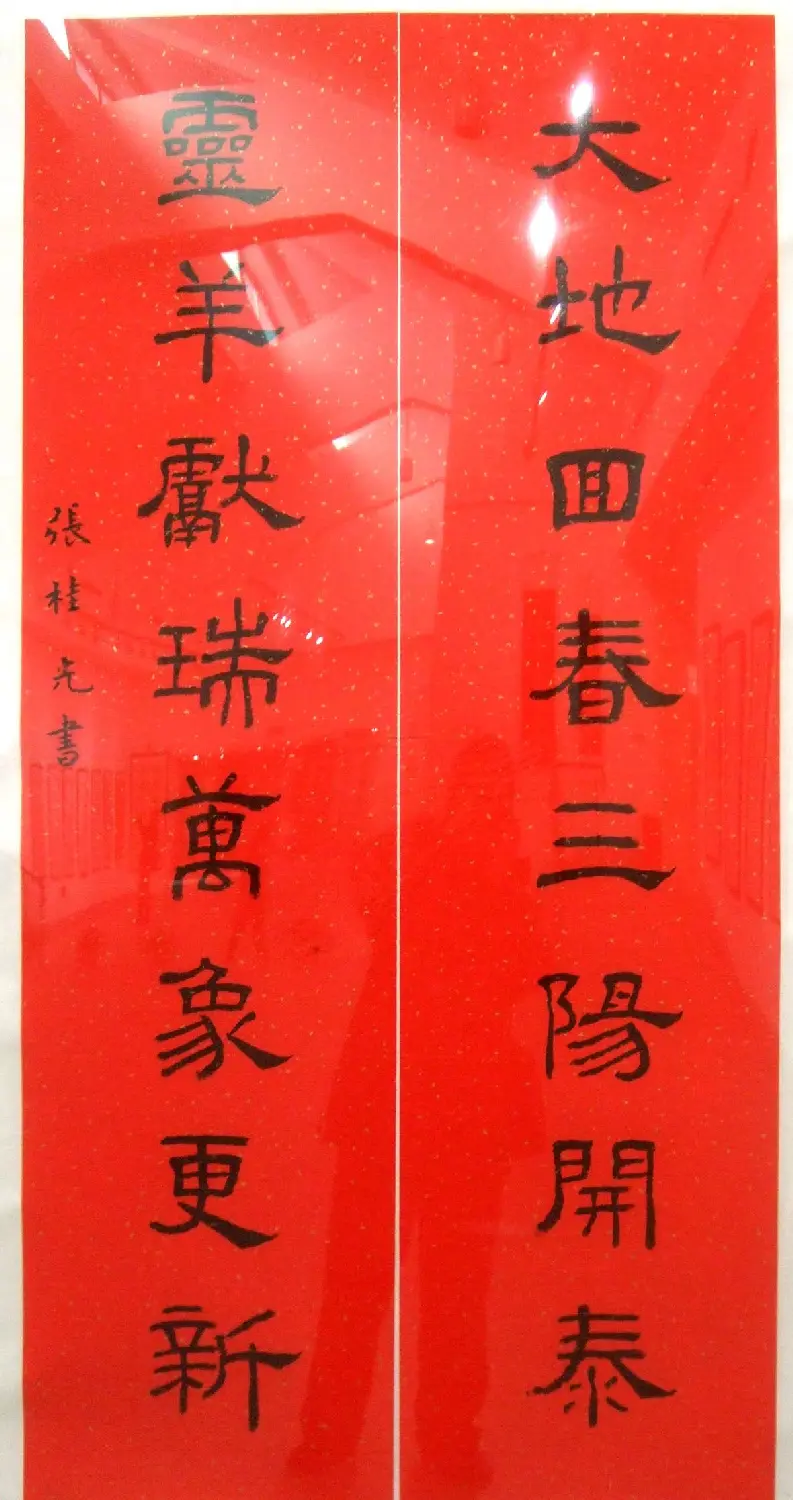 大地回春三陽開泰
靈羊獻瑞萬象更新
張桂光書